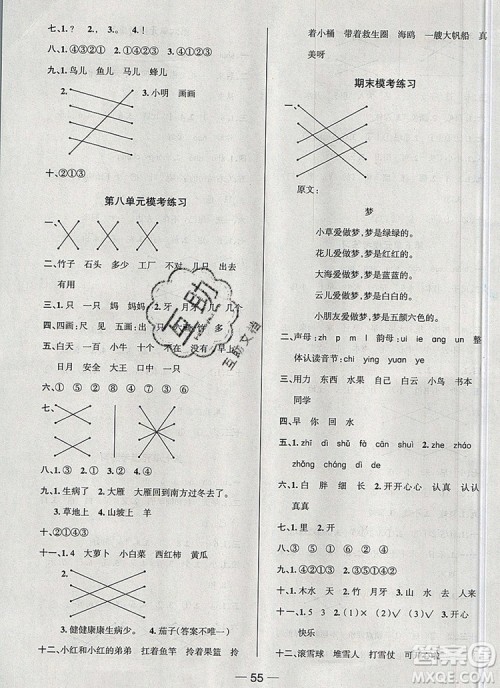 七、1.、 2.。 3.、、。 4.。 ?
八、1.④①③② 2.①③②④
九、1.鸟儿 虫儿 鱼儿 马儿 蜂儿
2. 3.小明 画画
十、②①③
第八单元模考练习
一、
二、竹子 石头 多少 工厂 不对 出去
有用
三、1.尺 只 妈 妈妈 2.牙 月 几 几个
四、四画:尺 见 五画:
五、白天 一百 小牛 牛 大小
日月 安全 大王 口
六、① ⑤ ② ④ ③ ⑥
七、
八、1.③ ① 2.① ② 3.② ④
九、1.生病了 2.大雁 大雁回到南方过冬去了。
3.草地上 4.山坡上 羊
十、②①④③
十一、1.4 大萝卜 小白菜 西红柿 黄瓜
2.
3.健健康康生病少。 4.茄子(答案不唯一)
十二、小红和小红的弟弟 扛着 拎着篮 拎
着小桶 带着救生圈 海鸥 一艘大帆船 真
美呀
期末模考练习
一、
原文:
梦
小草爱做梦,梦是绿绿的。
花儿爱做梦,梦是红红的。
大海爱做梦,梦是蓝蓝的。
云儿爱做梦,梦是白白的。
小朋友爱做梦,梦是五颜六色的。
二、声母:zh p t y 韵母:ui e un ang 整
体认读音节:chi ying yuan yi
三、用力 东西 水果 自己 白云 小鸟 书本
同学
四、早 你 回 水
五、1.zhī dì shǔ fā shù 2.zhe zháo
zhǒng cháng dí de
六、1.白 胖 细 长 2.关 开
七、1.。 2.!
八、③ ② ⑤ ④ ①
九、1.④①②③ 2.③⑤②①④
十、1.木水 天 2.日 月 山 水 云 牙
十一、1.5 3 2.(1)× (2)√ (3)√ 3.开心
快乐
十二、滚雪球 堆雪人 打雪仗
55
互助
互助文档
答案圈
MXQE.COM